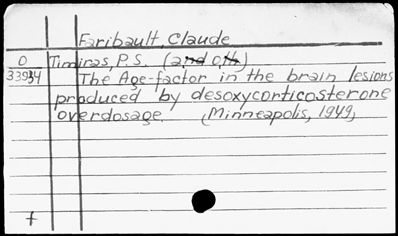 Faribault, Claude
O Timiras, P.S. (and oth)
33934 The Age-factor in the brain lesions
produced by desoxycorticosterone
overdosage. (Minneapolis, 1949,
t